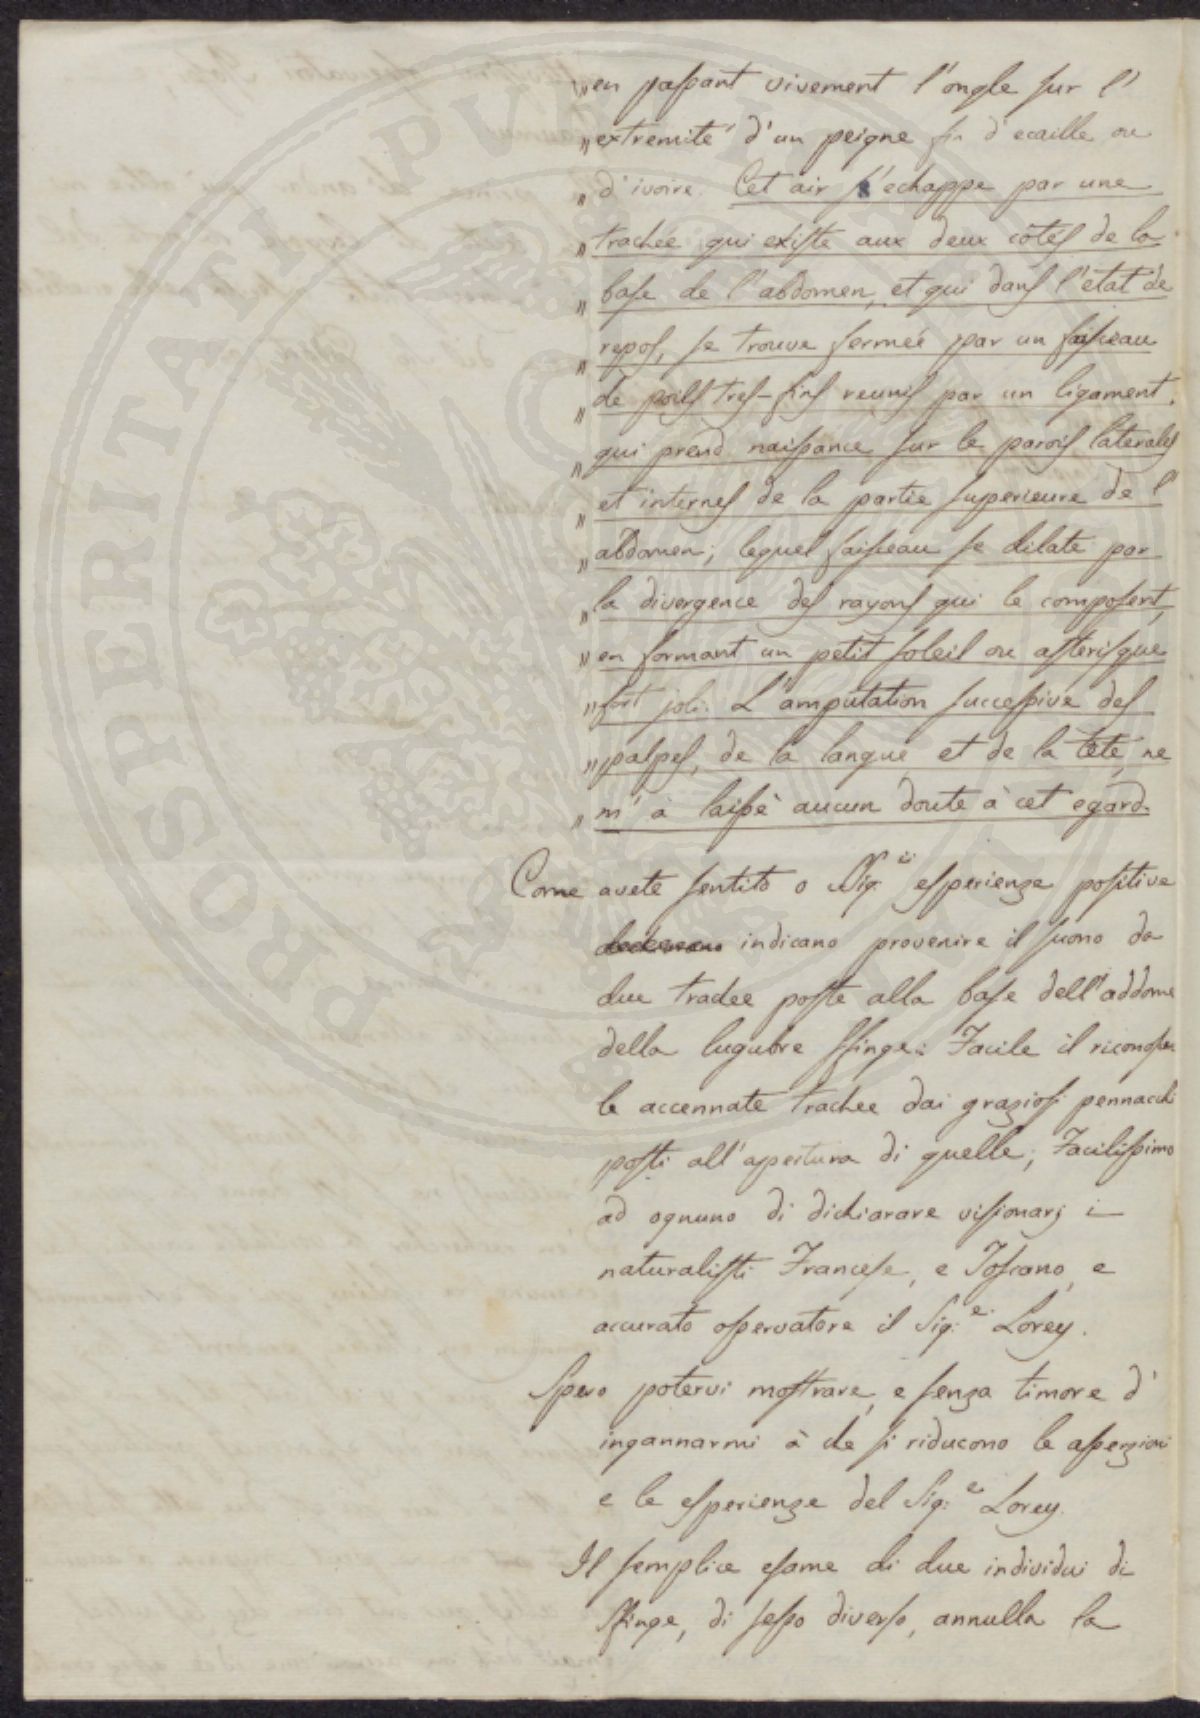 „ en passant vivement l'ongle sur l'
„ extremité d'un peigne fin d'ecaille ou
„ d'ivoire. Cet air s'echappe par une
„ trachée qui existe aux deux côtés de la
„ base de l'abdomen, et qui dans l'état de
„ repos, se trouve fermée par un faisceau
„ de poils tres-fins reunis par un ligament,
„ qui prend naissance sur le parois laterales
„ et internes de la partie superieure de l'
„ abdomen; lequel faisceau se dilate par
„ la divergence des rayons qui le composent,
„ en formant un petit soleil ou asterisque
„ fort joli. L'amputation successive des
„ palpes, de la langue et de la tête, ne
„ m'a laissè aucun doute à cet egard.
Come avete sentito o Sig.ri esperienze positive
indicano provenire il suono da
due trachee poste alla base dell'addome
della lugubre Sfinge: Facile il riconoscere
le accennate trachee dai graziosi pennacchi
posti all'apertura di quelle; Facilissimo
ad ognuno di dichiarare visionarj i
naturalisti Francese, e Toscano, e
accurato osservatore il Sig.e Lorey.
Spero potervi mostrare, e senza timore d'
ingannarmi à che si riducono le asserzioni
e le esperienze del Sig.e Lorey.
Il semplice esame di due individui di
Sfinge, di sesso diverso, annulla la
PROSPERITATI PUBLICAE